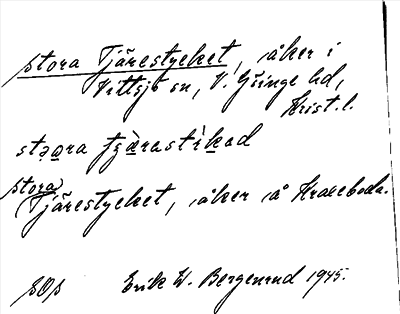 stora Tjärestycket, åker i
Vittsjö sn, V. Göinge hd,
Krist. l.
stǝora tjärastikad
stora
Tjärestycket, åker å
Erik W. Bergenrud 1945.